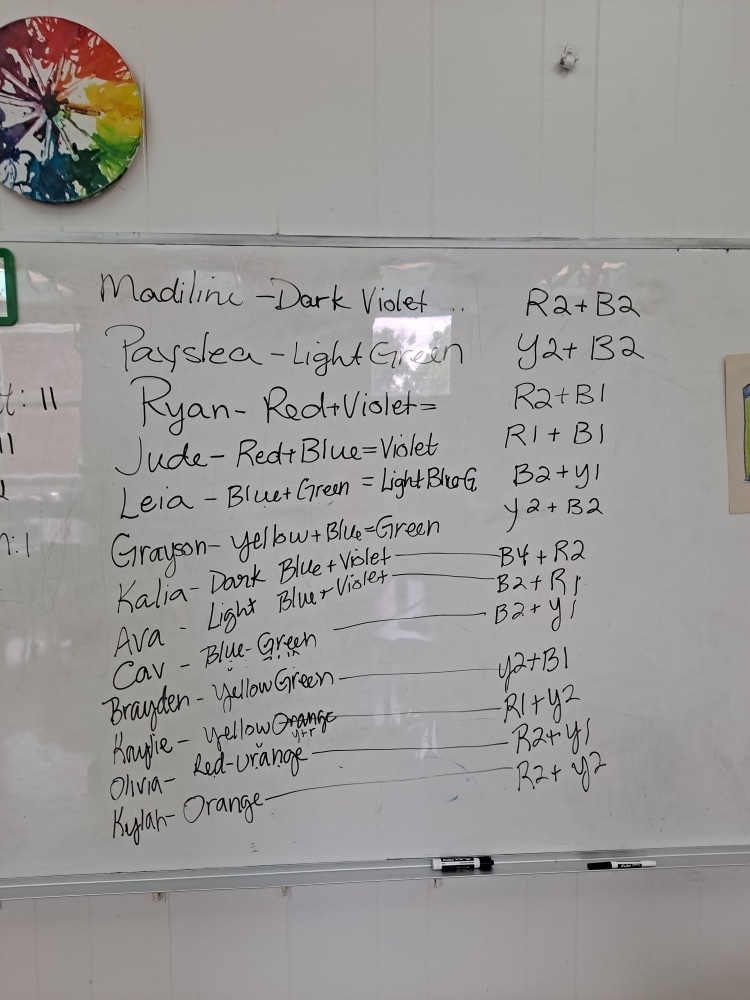 Madiline - Dark Violet .. R2 + B2
Payslea - Light Green Y2 + B2
Ryan - Red + Violet = R2 + B1
Jude - Red + Blue = Violet R1 + B1
Leia - Blue + Green = Light Blue G. B2 + y1
Grayson - Yellow + Blue = Green y2 + B2
Kalia - Dark Blue + Violet B4 + R2
Ava - Light Blue + Violet B2 + R1
Cav - Blue-Green B2 + y1
Brayden - Yellow Green y2 + B1
Kaylie - Yellow Orange R1 + y2
y+r
Olivia - Red-Orange R2 + y1
Kylah - Orange R2 + y2
t: 11
11
2
n: 1